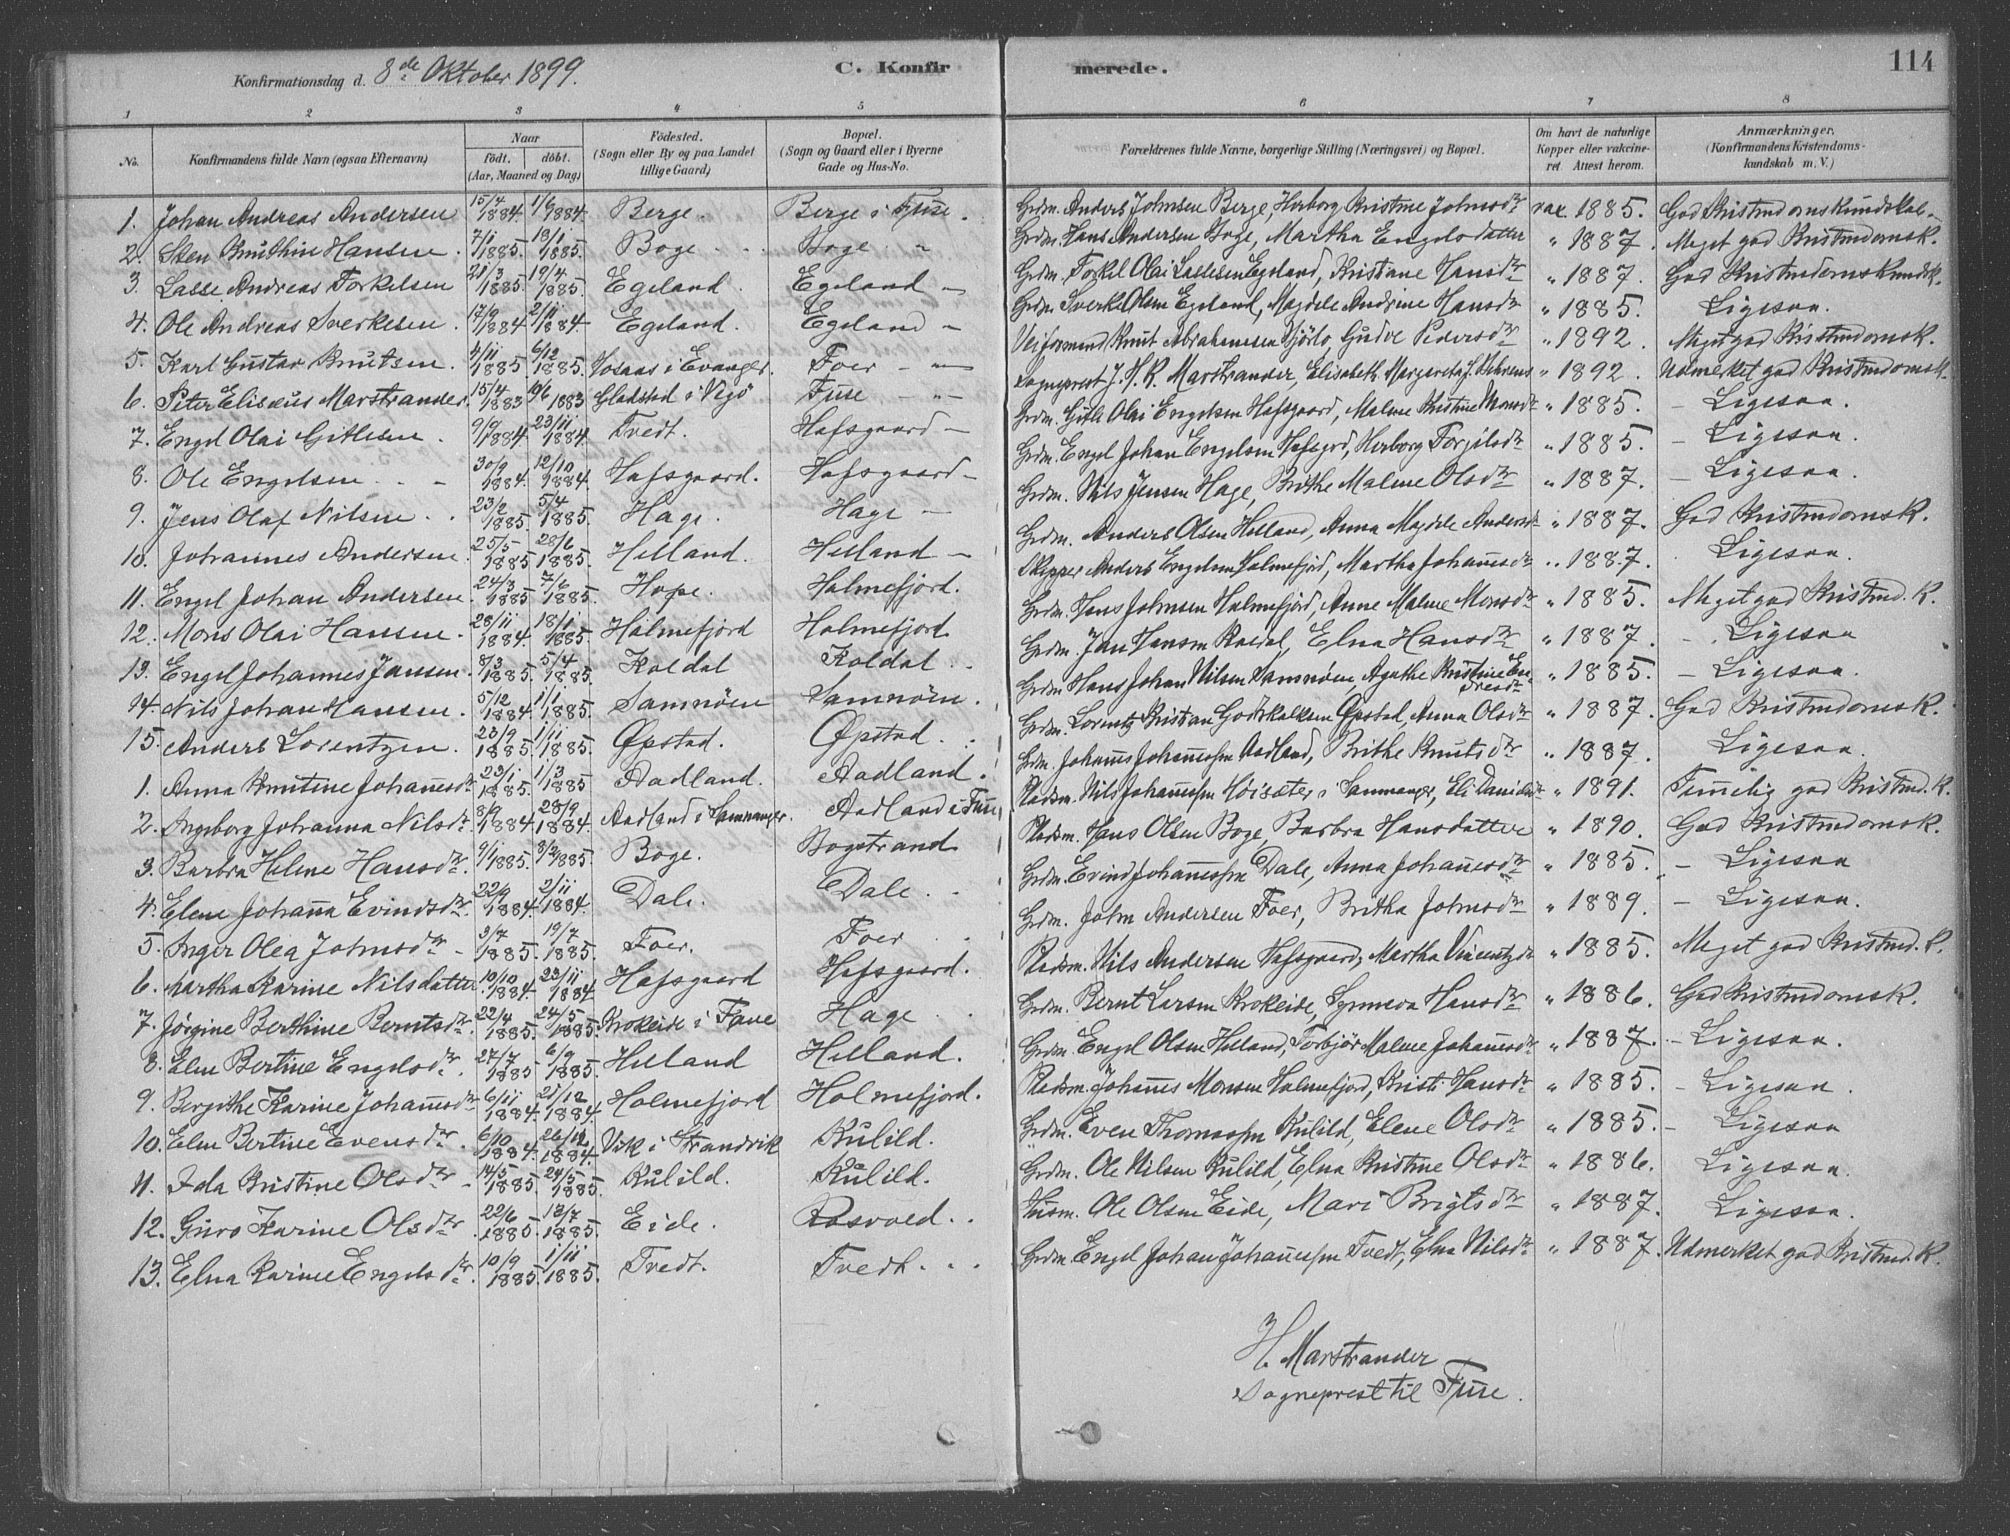 Konfirmationsdag d. 8de Oktober 1899. C. Konfirmerede. 114
1 2 3 4 5 6 7 8
No. Konfirmandens fulde Navn (ogsaa Efternavn) Naar født. døbt. (Aar, Maaned og Dag) Fødested. (Sogn eller By og paa Landet tillige Gaard) Bopæl. (Sogn og Gaard eller i Byerne Gade og Hus-No. Forældrenes fulde Navne, borgerlige Stilling (Næringsvei) og Bopæl. Om havt de naturlige Kopper eller vakcineret. Attest herom. Anmærkninger. (Konfirmandens Kristendomskundskab m. V.)
1. Johan Andreas Andersen 15/4 1884. 1/6 1884. Berge. Berge i Fuse. Grdm. Anders Johnsen Berge, Herborg Kristine Johnsdtr vax. 1885. God Kristendomskundskab
2. Sten Knuthin Hansen 7/1 1885. 18/1 1885. Boge Boge " Grdm. Hans Andersen Boge, Martha Engelsdatter " 1887. Meget god Kristendomsk.
3. Lasse Andreas Torkelsen 21/3 1885. 19/4 1885. Egeland. Egeland — Grdm. Torkel Olai Lassesen Egeland, Kristiane Hansdtr " 1887. God Kristendomskundsk.
4. Ole Andreas Sverkesen. 17/9 1884 2/11 1884 Egeland. Egeland — Grdm. Sverke Olsen Egeland, Magdele Andrine Hansdtr " 1885. Ligesaa.
5. Karl Gustav Knutsen. 4/11 1885. 6/12 1885. Vosaas i Evanger. Foer — " — Veiformand Knut Abrahamsen Gudve Pedersdtr " 1892. Meget god Kristendomsk.
6. Peter Elisæus Marstrander. 15/4 1883 10/6 1883 Gladsted i Vegø Fuse — " — Sogneprest J. H. K. Marstrander, Elisabeth Margaretha J. Behrens " 1892. Udmerket god Kristendomsk.
7. Engel Olai Gitlesen. 9/9 1884. 23/11 1884. Tvedt. Hafsgaard — Grdm. Gitle Olai Engelsen Hafsgaard, Malene Kristine Monsdtr " 1885. — Ligesaa.
8. Ole Engelsen 30/9 1884. 12/10 1884. Hafsgaard. Hafsgaard — Grdm. Engel Johan Engelsen Hafsgrd, Herborg Torgilsdtr " 1885. — Ligesaa.
9. Jens Olaf Nilsen 23/2 1885. 5/4 1885. Hage. Hage — Grdm. Nils Jensen Hage, Brithe Malene Olsdtr " 1887. — Ligesaa.
10. Johannes Andersen. 25/5 1885 28/6 1885. Helland. Helland — Grdm. Anders Olsen Helland, Anna Magdele Andersdtr " 1887. God Kristendomsk.
11. Engel Johan Andersen. 24/3 1885 7/6 1885. Hope. Holmefjord. Skipper Anders Engelsen Holmefjord, Martha Johannesdtr " 1887. Ligesaa.
12. Mons Olai Hansen. 28/11 1884. 18/1 1885. Holmefjord Holmefjord Grdm. Hans Johnsen Holmefjord, Anne Malene Monsdtr " 1885. Meget god Kristend. K.
13. Engel Johannes Jansen. 8/3 1885. 5/4 1885. Koldal Koldal. Grdm. Jan Hansen Koldal, Elna Hansdtr " 1887. — Ligesaa
14. Nils Johan Hansen. 5/12 1884. 1/1 1885. Samnøen Samnøen. Grdm. Hans Johan Nilsen Samnøen, Agathe Kristine Endresdtr " 1885. — Ligesaa.
15. Anders Lorentzen. 23/9 1885. 1/11 1885. Øpstad. Øpstad. Grdm. Lorentz Kristian Godskalksen Øpstad, Anna Olsdtr " 1887. God Kristendomsk.
1. Anna Knutine Johannesdtr 23/1 1885. 1/3 1885 Aadland. Aadland. Grdm. Johannes Johannessen Aadland, Brithe Knutsdtr " 1887. Ligesaa.
2. Ingeborg Johanna Nilsdtr 8/9 1884. 28/9 1884. Aadland i Samnanger. Aadland i Fuse Pladsm. Nils Johannessen Høisæter i Samnanger, Eli Danielsdtr " 1891. Temmelig god Kristend. K.
3. Barbra Helene Hansdtr. 9/1 1885. 8/2 1885. Boge. Bogstrand Pladsm. Hans Olsen Boge, Barbra Hansdatter " 1890. God Kristendomsk.
4. Elene Johanna Evindsdtr. 22/9 1884. 2/11 1884. Dale. Dale. Grdm. Evind Johannessen Dale, Anna Johannesdtr " 1885. — Ligesaa
5. Inger Olea Johnsdtr 3/7 1885. 19/7 1885. Foer. Foer Grdm. John Andersen Foer, Britha Johnsdtr " 1889. — Ligesaa.
6. Martha Karine Nilsdatter 10/10 1884. 23/11 1884 Hafsgaard Hafsgaard. Pladsm. Nils Andersen Hafsgaard, Martha Vincentzdtr " 1885. Meget god Kristend. K.
7. Jørgine Berthine Berntsdtr. 22/4 1885. 24/5 1885. Krokeide i Fane Hage Grdm. Bernt Larsen Krokeide, Synneva Hansdtr " 1886. God Kristendomsk.
8. Elen Bertine Engelsdtr. 27/7 1885 6/9 1885. Helland Helland. Grdm. Engel Olsen Helland, Torbjør Malene Johannesdtr " 1887. — Ligesaa.
9. Bergithe Karine Johannesdtr 6/11 1884. 25/12 1884. Holmefjord Holmefjord. Pladsm. Johannes Monsen Holmefjord, Kristi Hansdtr " 1885. — Ligesaa.
10. Elen Bertine Evensdtr. 6/10 1884. 26/12 1884. Vik i Strandvik Kulild. Grdm. Even Thomassen Kulild, Elene Olsdtr " 1885. — Ligesaa
11. Ida Kristine Olsdtr 14/5 1885. 24/5 1885. Kulild. Kulild. Grdm. Ole Nilsen Kulild, Elna Kristine Olsdtr " 1886. Ligesaa.
12. Guro Karine Olsdtr 22/6 1885. 12/7 1885. Eide. Husm. Ole Olsen Eide, Mari Brigtsdtr " 1887. Ligesaa.
13. Elna Karine Engelsdtr. 10/9 1885. 1/11 1885. Tvedt. Tvedt. Grdm. Engel Johan Johannessen Tvedt, Elna Nilsdtr " 1887. Udmerket god Kristend. K.
H. Marstrander
Sogneprest til Fuse.